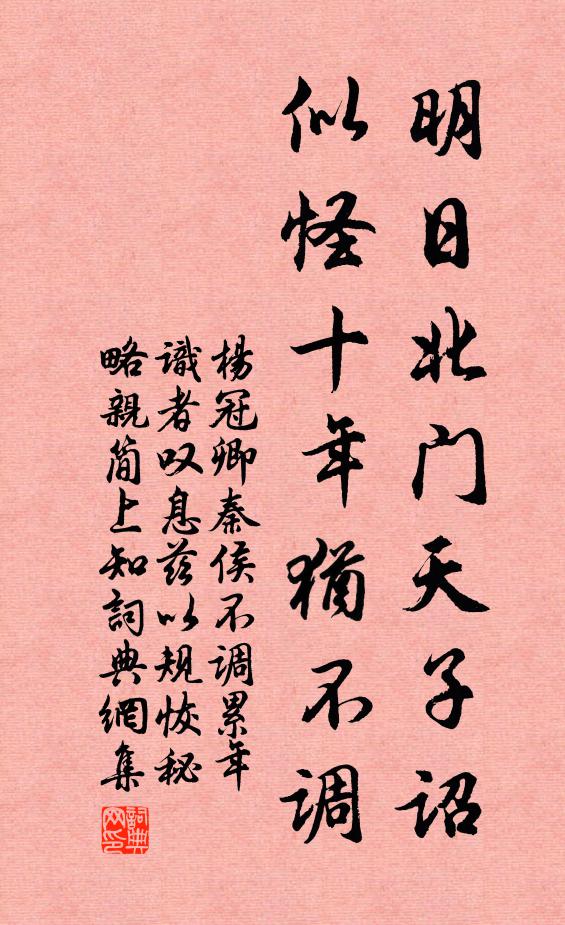 明日北门天子詔
似怪十年猶不调
楊冠卿秦侯不调累年
識者叹息茲以規恢秘
略親简上知詞典網集
詞典
网印